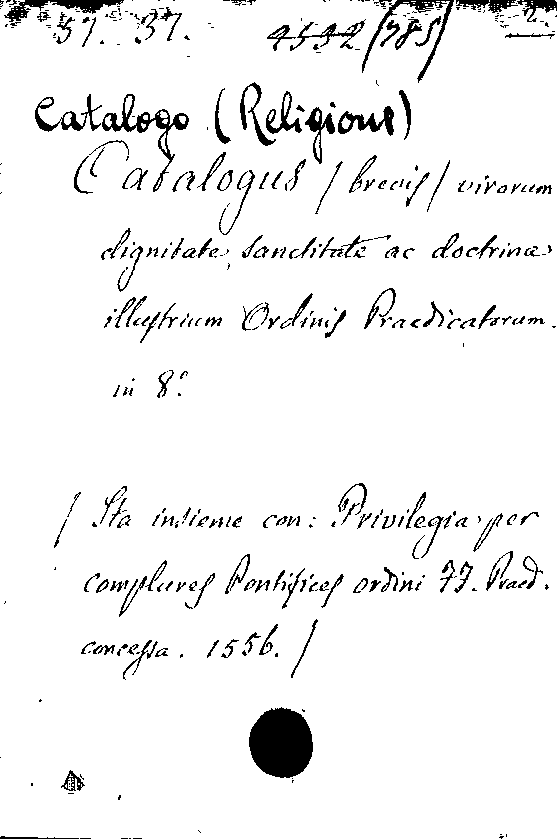 57. 37. 4532 (785) 2.
Catalogo (Religious)
Catalogus / brevis / virorum
dignitate, sanctitate ac doctrina
illustrium Ordinis Praedicatorum.
in 8.°
/ Sta insieme con: Privilegia per
complures Pontifices ordini FF. Praed.
concessa. 1556. /